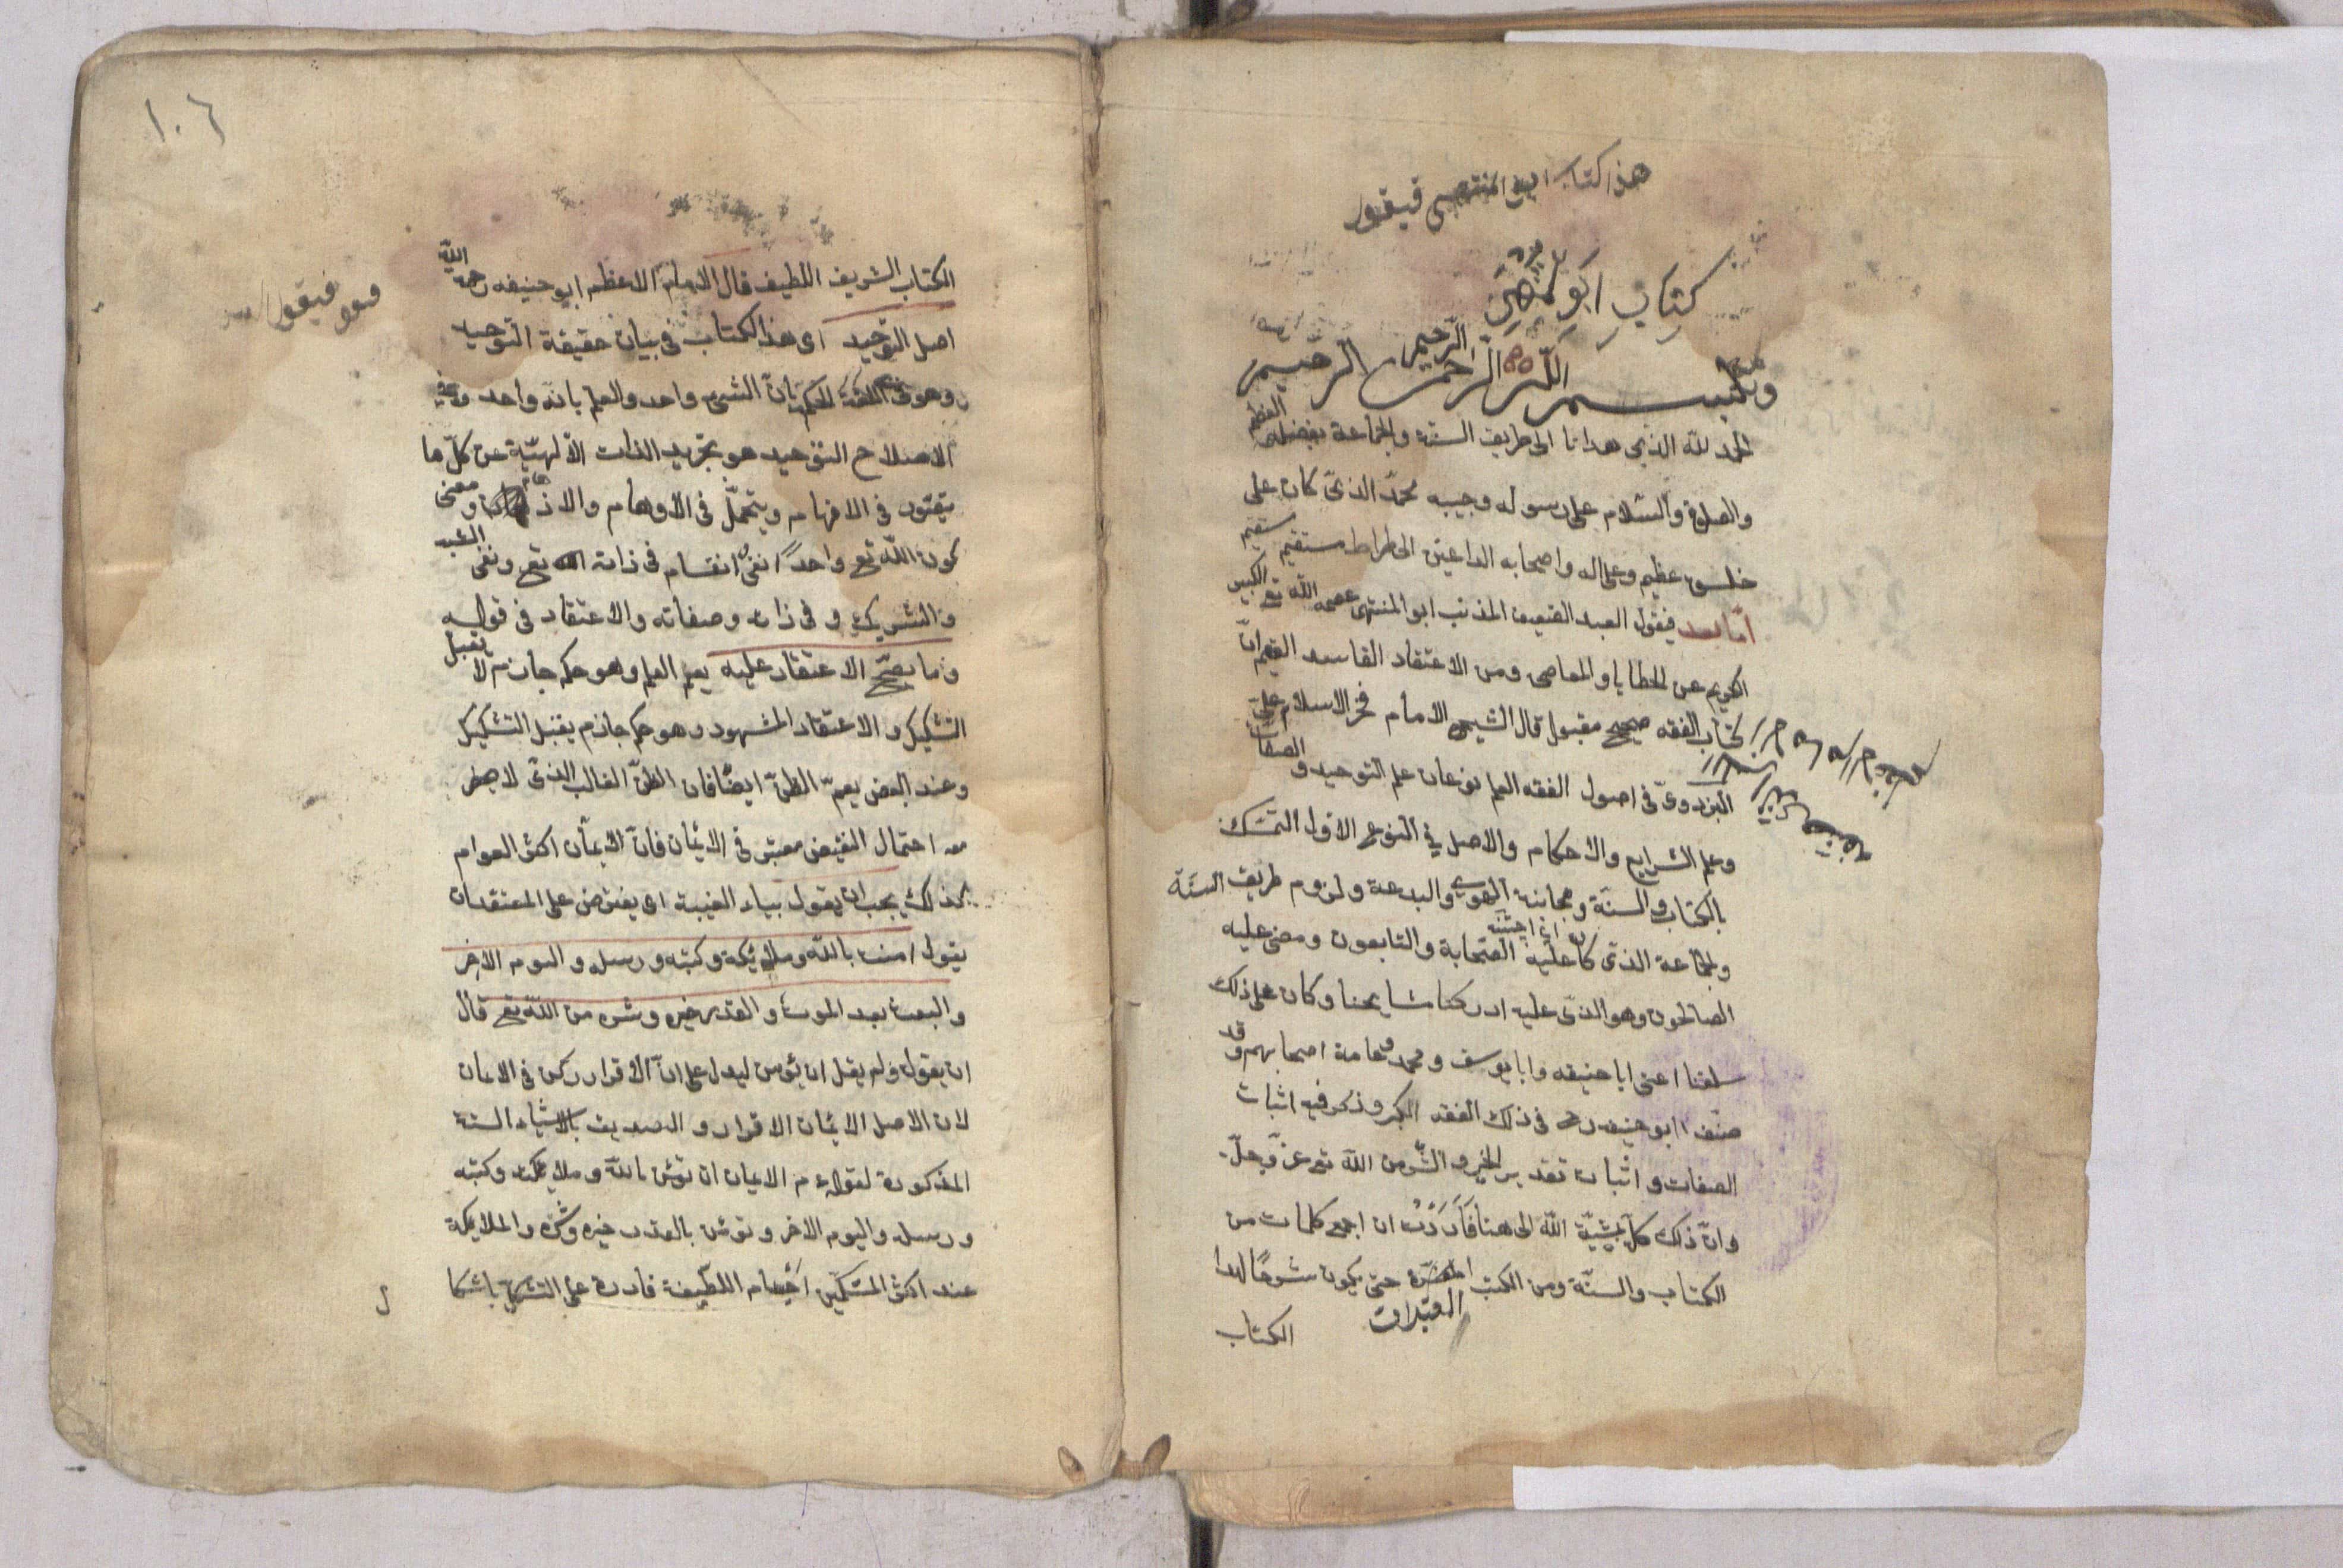 هذا كتاب ابو المنتهى فيقول
كتاب ابو المنتهى
بسم الله الرحمن الرحيم
الحمد لله الذى هدانا الى طريق السنة والجماعة بفضله العظيم
والصلوة والسلام على رسوله وحبيبه محمد الذى كان على
خلق عظيم وعلى اله واصحابه الداعين الى صراط مستقيم
اما بعد فيقول العبد الضعيف المذنب ابو المنتهى عصمه الله تع الكبير
الكريم عن الخطايا والمعاصى ومن الاعتقاد الفاسد العقيم ان
كتاب الفقه صحيح مقبول قال الشيخ الامام فخر الاسلام على
البزدوى فى اصول الفقه العلم نوعان علم التوحيد والصفات
وعلم الشرايع والاحكام والاصل فى النوع الاول التمسك
بالكتاب والسنة ومجانبة الهوى والبدعة ولزوم طريق السنة
والجماعة الذى كان عليه الصحابة والتابعون ومضى عليه
الصالحون وهو الذى عليه ادركنا مشايخنا وكان على ذلك
سلفنا اعنى ابا حنيفه وابا يوسف ومحمد وعامة اصحابهم وقد
صنف ابو حنيفه رح فى ذلك الفقه الاكبر وذكر فيه اثبات
الصفات واثبات تقدير الخير والشر من الله تع عز وجل
وان ذلك كل بمشية الله الى هنا فاردت ان اجمع كلمات من
الكتاب والسنة ومن الكتب المعتبرات حتى يكون شرحا لهذا
الكتاب
١٠٦
الكتاب الشريف اللطيف قال الامام الاعظم ابو حنيفه رحمه الله
اصل التوحيد اى هذا الكتاب فى بيان حقيقة التوحيد
وهو فى اللغة الحكم بان الشىء واحد والعلم بانه واحد وفى
الاصطلاح التوحيد هو تجريد الذات الالهية عن كل ما
يتصور فى الافهام ويتخيل فى الاوهام والاذهان ومعنى
كون الله تع واحدا نفى انقسام فى ذاته تع ونفى الشبه
والشريك فى ذاته وصفاته والاعتقاد فى قوله
وما يصح الاعتقاد عليه يعم العلم وهو حكم جازم لا يقبل
التشكيك والاعتقاد المشهود وهو حكم جازم يقبل التشكيك
وعند البعض يعم الظن ايضا فان الظن الغالب الذى لا يخطر
معه احتمال النقيض معتبر فى الايمان فان الايمان اكثر العوام
كذلك يجب ان يقول بياء الغيبة اى يفترض على المعتقد ان
يقول امنت بالله وملائكته وكتبه ورسله واليوم الاخر
والبعث بعد الموت والقدر خيره وشره من الله تع قال
ان يقول ولم يقل ان يؤمن ليدل على ان الاقرار ركن فى الايمان
لان الاصل الايمان الاقرار والتصديق بالاشياء الستة
المذكورة لقوله ع م الايمان ان تؤمن بالله وملائكته وكتبه
ورسله واليوم الاخر وتؤمن بالقدر خيره وشره والملائكة
عند اكثر المتكلمين اجسام اللطيفة قادرة على التشكل باشكا
ل